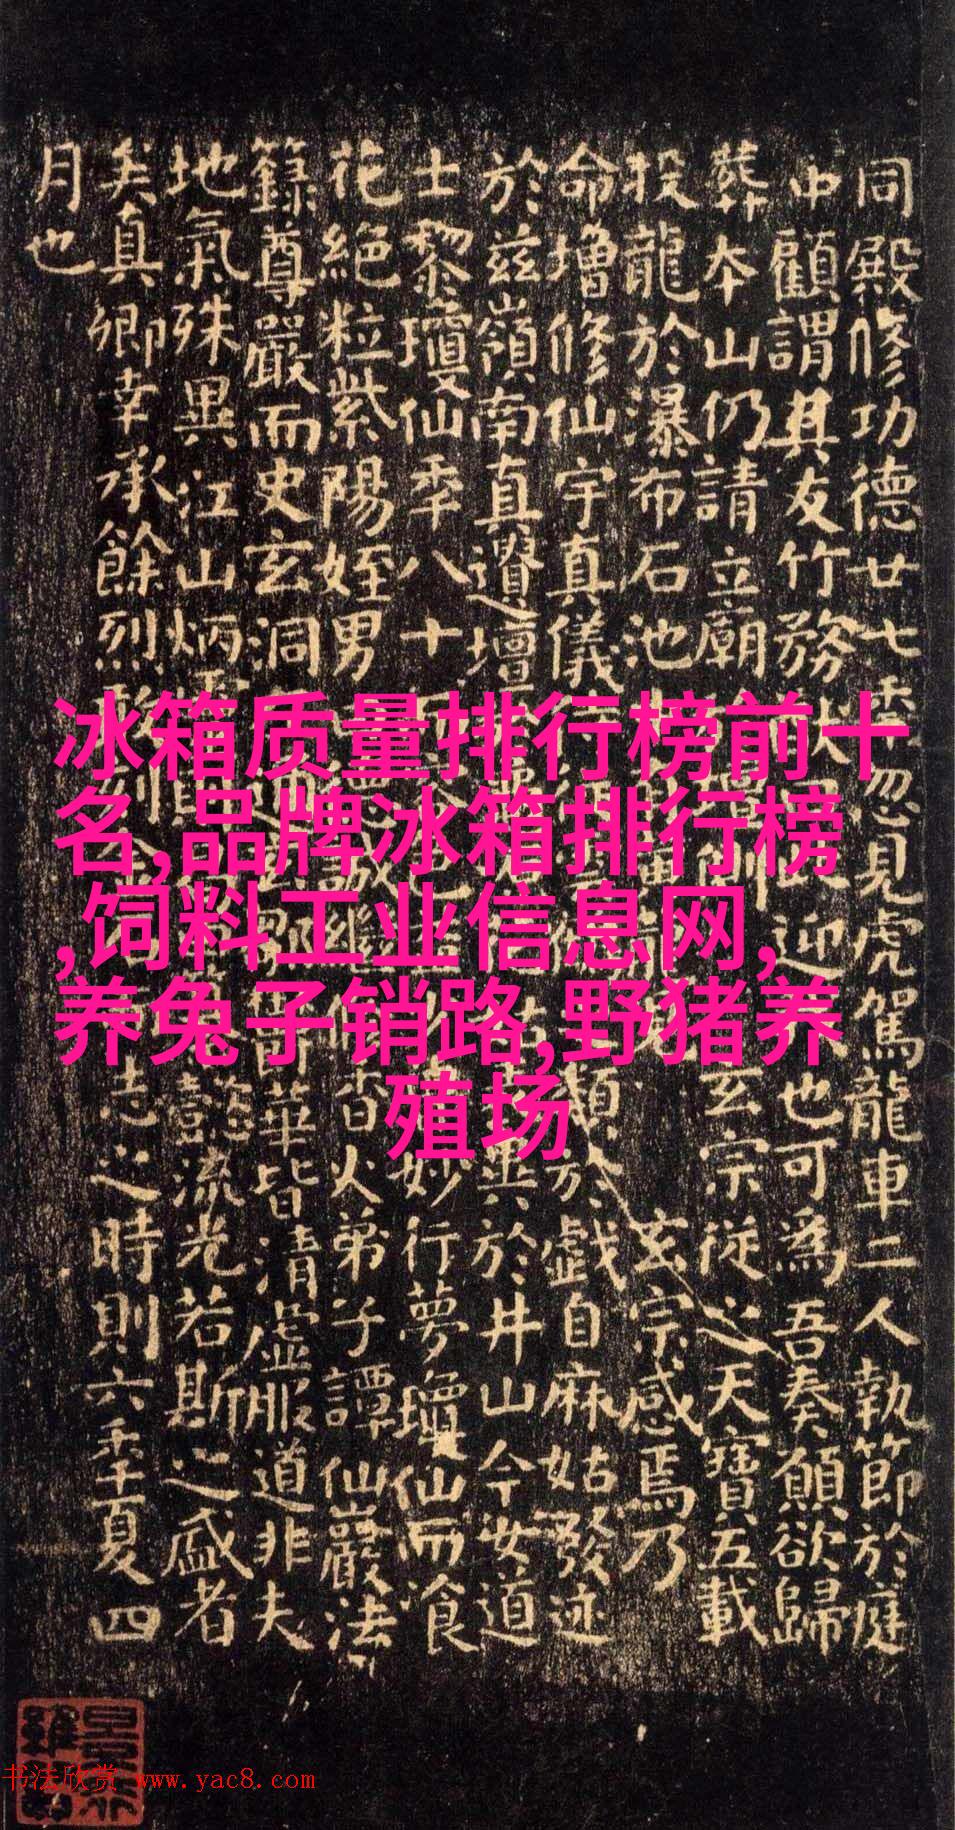 同殿修功德廿七年忽見虎駕龍車二人執節於庭
中顧謂其友竹務猷迎也可為吾奏願欲歸
葬本山仍請立廟側玄宗從之天寶五載
投龍於瀑布石池黃龍玄宗感焉乃
命增修仙宇真儀類於戲自麻姑發迹
於茲嶺南真遺壇異於井山今女道
士黎瓊仙年八十妙行夢瓊仙而飡
花絕粒紫陽姪男誠繼香火弟子譚仙巖法
籙尊嚴而史玄洞華皆清虛服道非夫
地氣殊異江山炳靈懿流光若斯之盛者
矣真卿幸承餘烈志之時則六年夏四
月也
冰箱质量排行榜前十
名,品牌冰箱排行榜
,饲料工业信息网,
养兔子销路,野猪养
殖场
书法欣赏 www.yac8.com